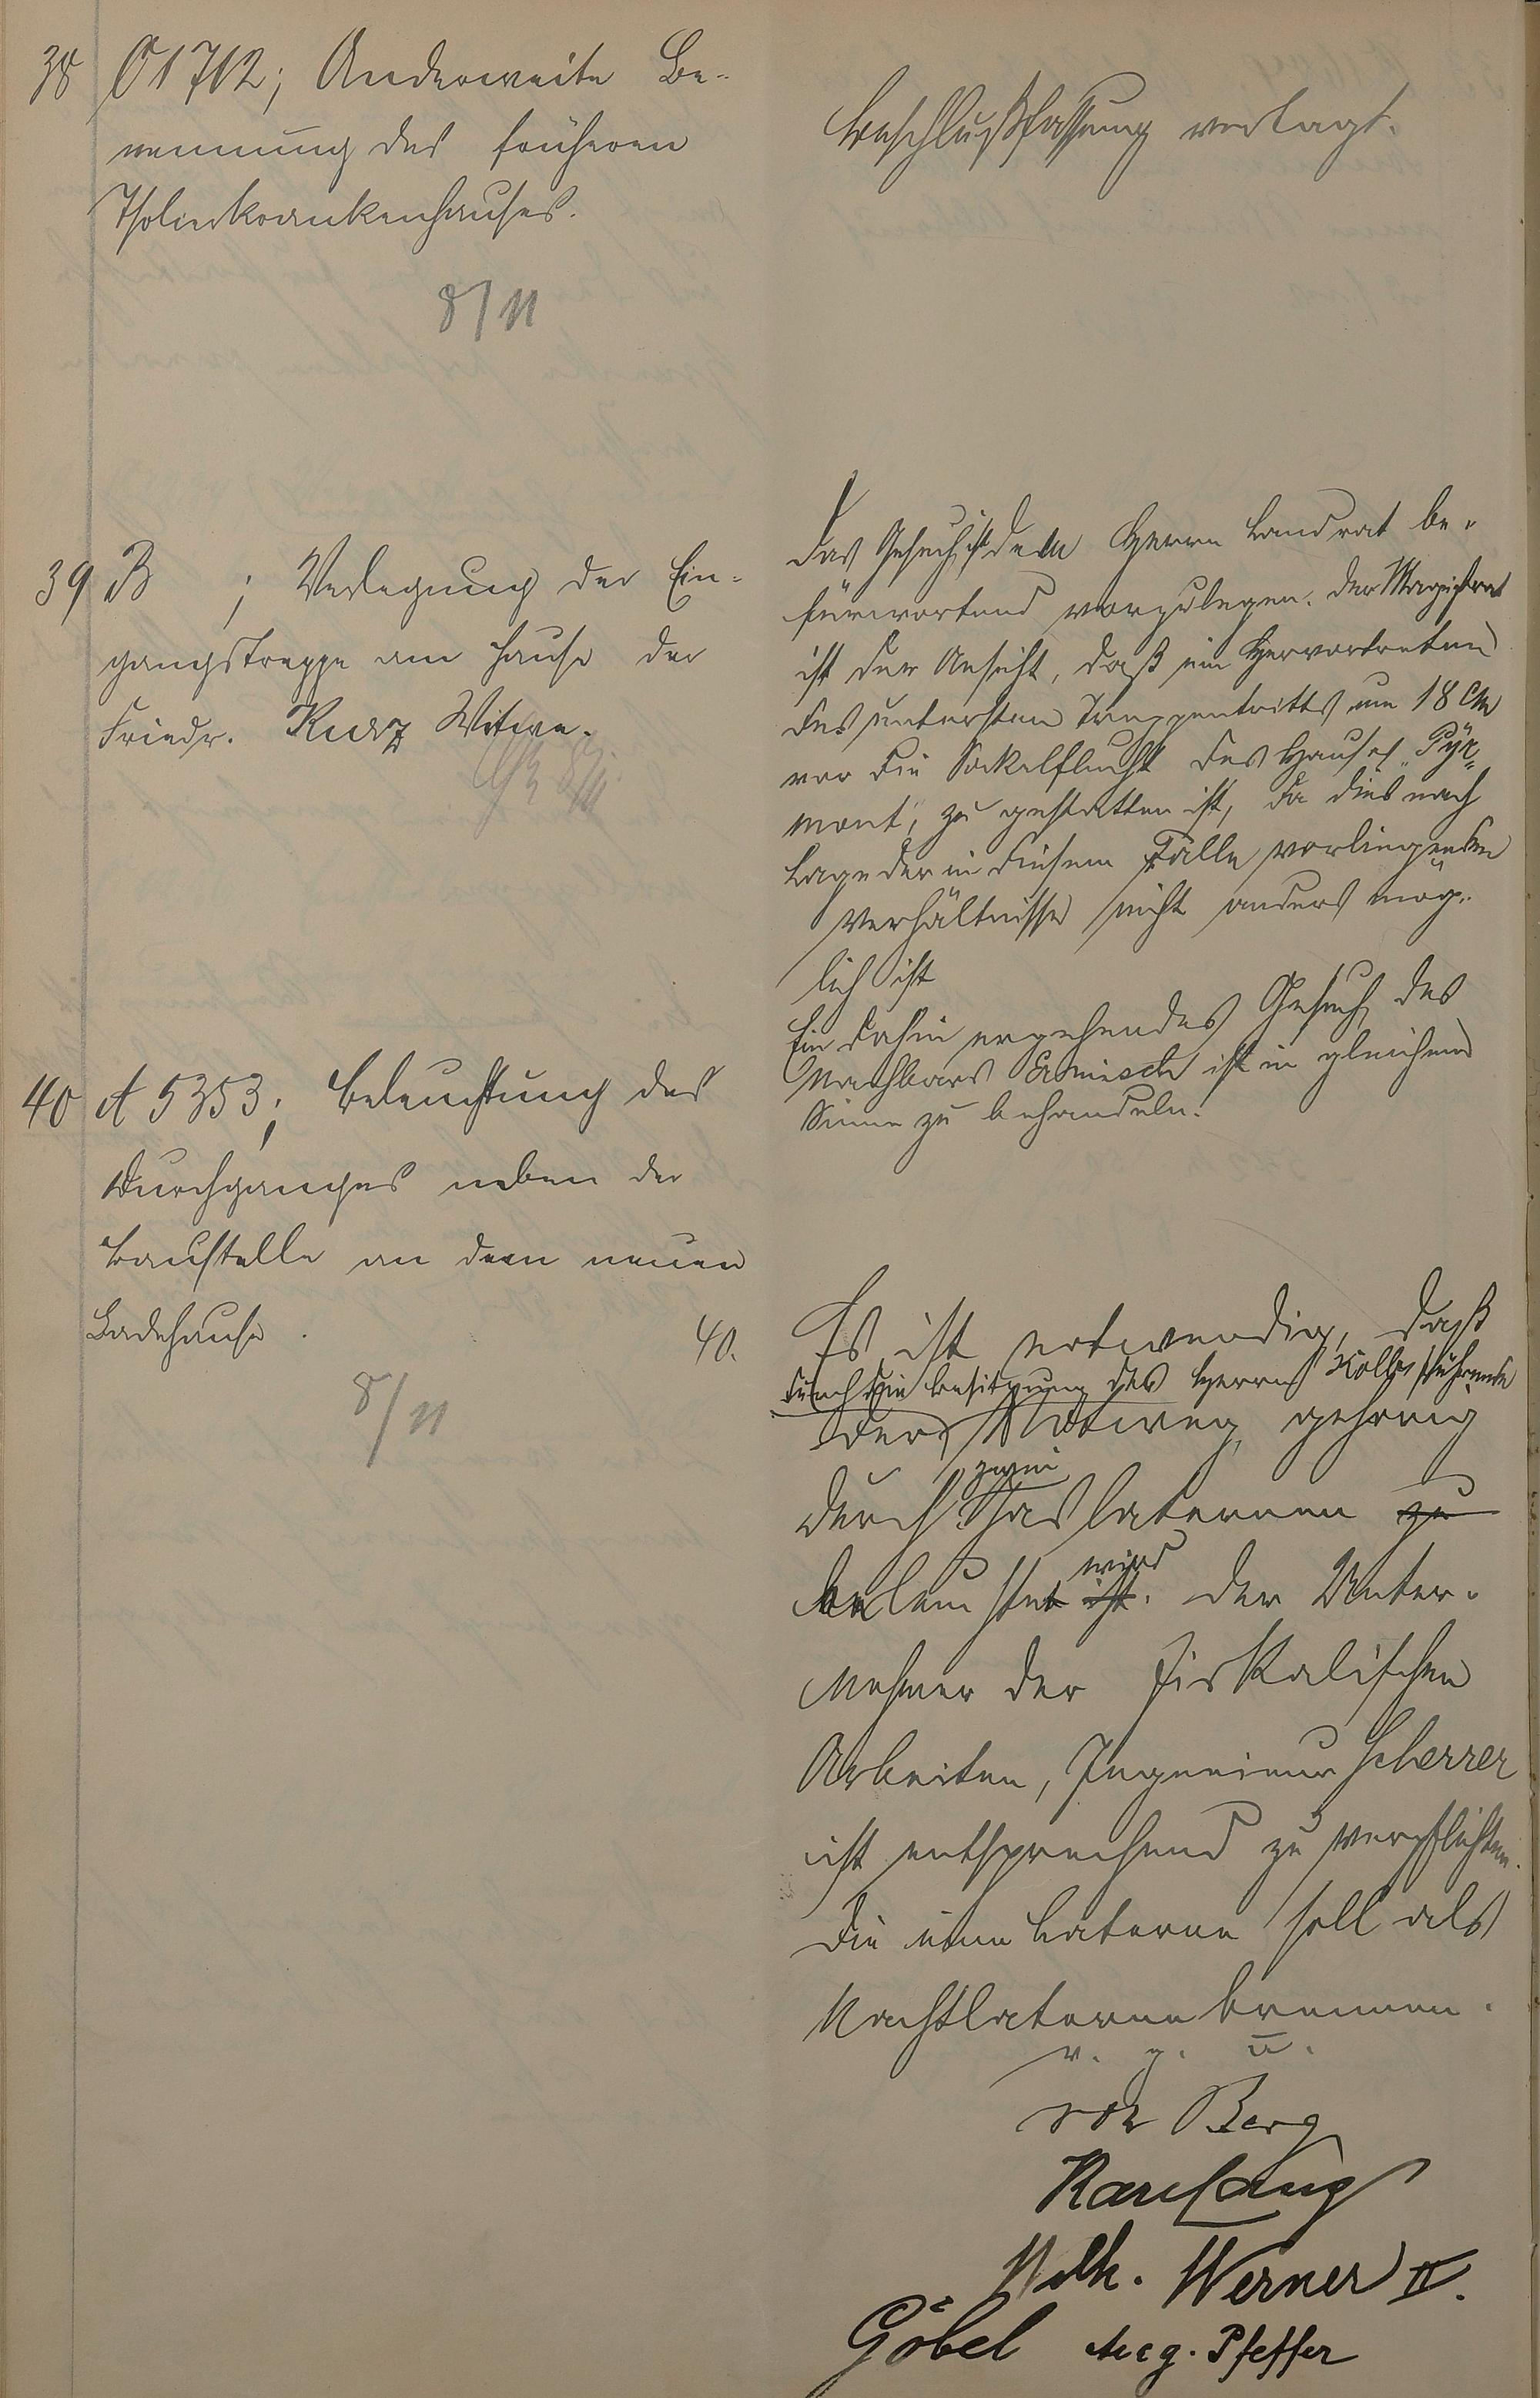 38 C 1712; Anderweite Be-
nennung des früheren
Isolierkrankenhauses.
8/11
Beschlußfassung vertagt.
39 B ; Verlegung der Ein-
gangstreppe am Hause der
Friedr. Kurz Witwe.
8/11
Das Gesuch ist dem Herrn Landrat be-
fürwortend vorzulegen. Der Magistrat
ist der Ansicht, daß ein Hervortreten
des untersten Treppentritts um 18 cm
vor die Sockelflucht des Hauses „Pyr-
mont", zu gestatten ist, da dies nach
Lage der in diesem Falle vorliegenden
Verhältnisse nicht anders mög-
lich ist
Ein dahin ergehendes Gesuch des
Nachbars ist in gleichem
Sinne zu behandeln.
40 A 5353; Beleuchtung des
Durchganges neben der
Baustelle an dem neuen
Badehause.
8/11
40. Es ist notwendig, daß
durch die Besitzung des Herrn Koller führende
der Notweg gehörig
zwei
durch Gaslaternen zu
wird
beleuchtet ist. Der Unter-
nehmer der fiskalischen
Arbeiten, Ingenieur Scherrer
ist entsprechend zu verpflichten.
Die eine Laterne soll als
Nachtlaterne brennen.
v. g. u.
von Berg
Karl Lang
Wilh. Werner II.
Göbel Aug. Pfeffer